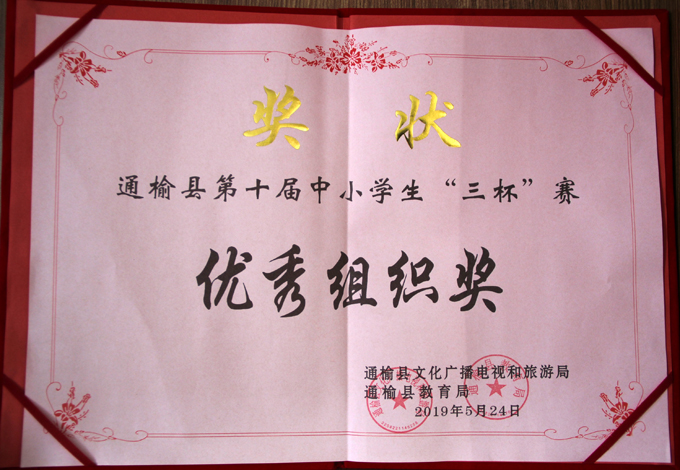 奖 状
通榆县第十届中小学生“三杯”赛
优秀组织奖
通榆县文化广播电视和旅游局
通榆县教育局
2019年5月24日